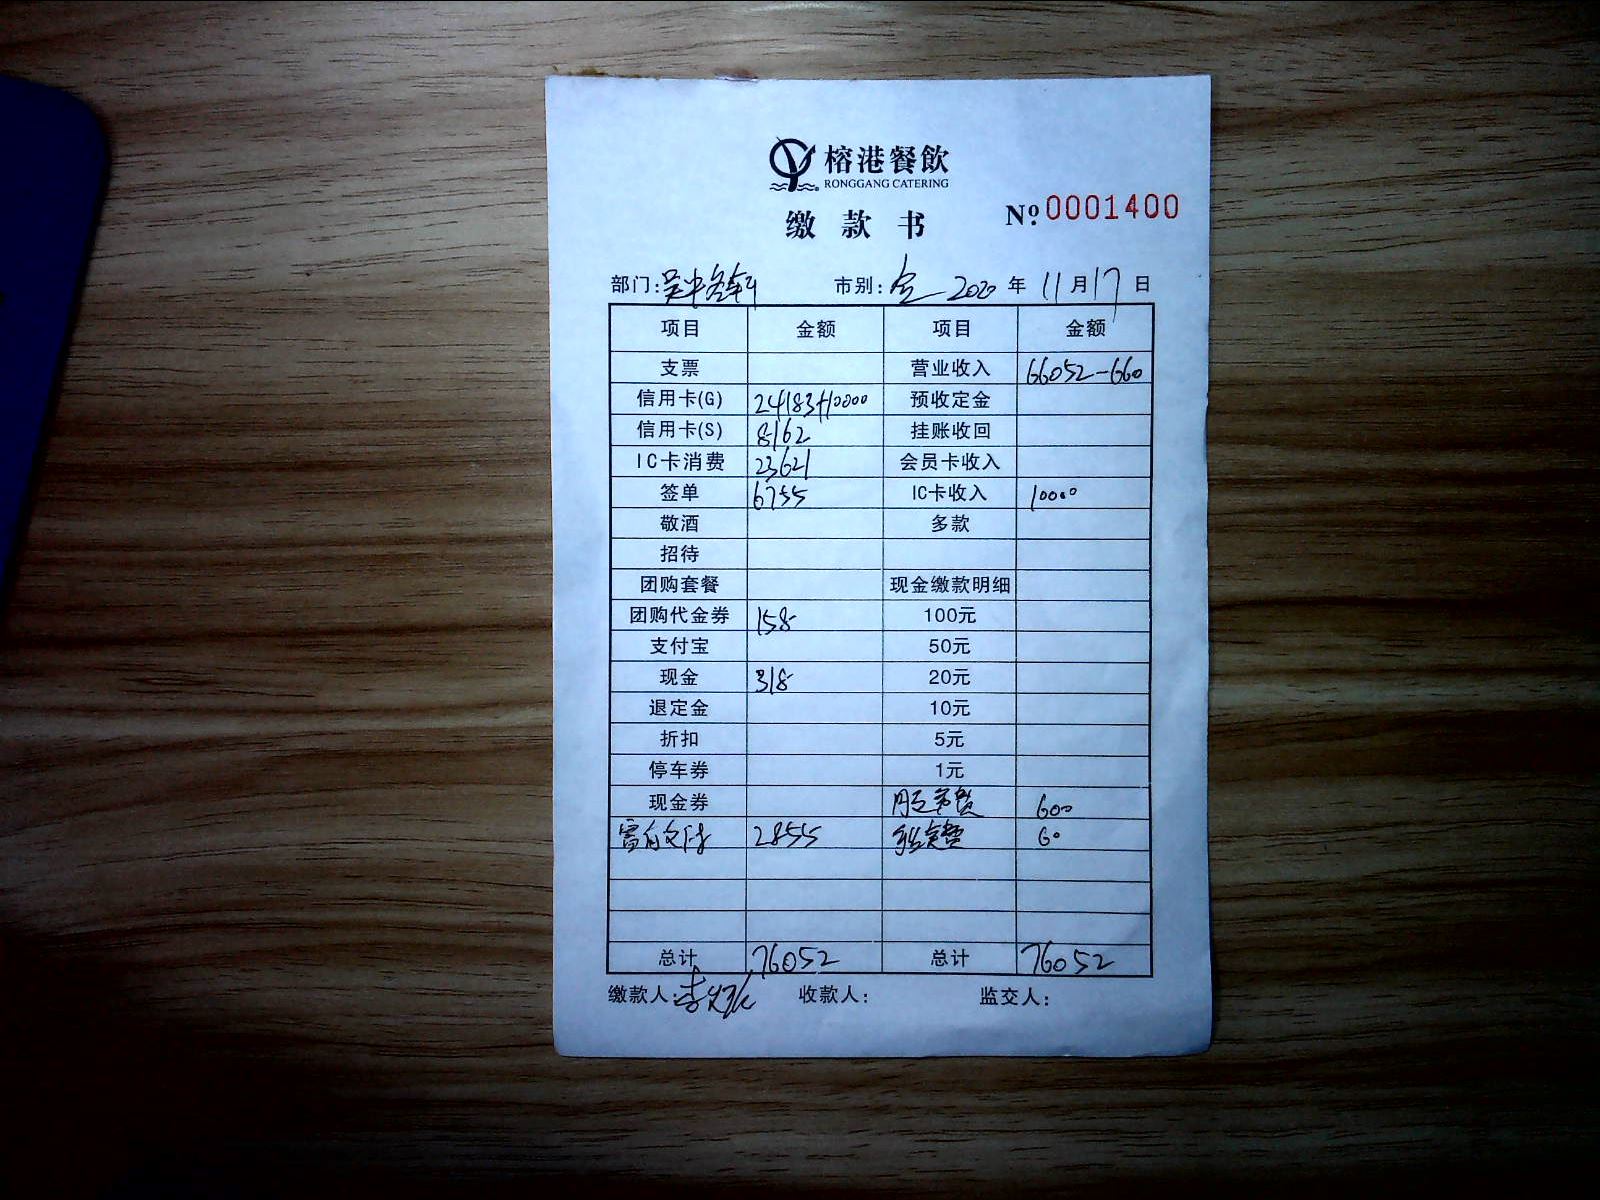 榕港餐飲
RONGGANG CATERING
缴款书 №0001400
部门: 市别: 全 2020 年 11 月 17 日
项目 金额 项目 金额
支票 营业收入 66052-660
信用卡(G) 24183+10000 预收定金
信用卡(S) 8162 挂账收回
IC卡消费 23621 会员卡收入
签单 6755 IC卡收入 10000
敬酒 多款
招待
团购套餐 现金缴款明细
团购代金券 158 100元
支付宝 50元
现金 318 20元
退定金 10元
折扣 5元
停车券 1元
现金券 服务费 600
2855 60
总计 76052 总计 76052
缴款人: 李 收款人: 监交人: